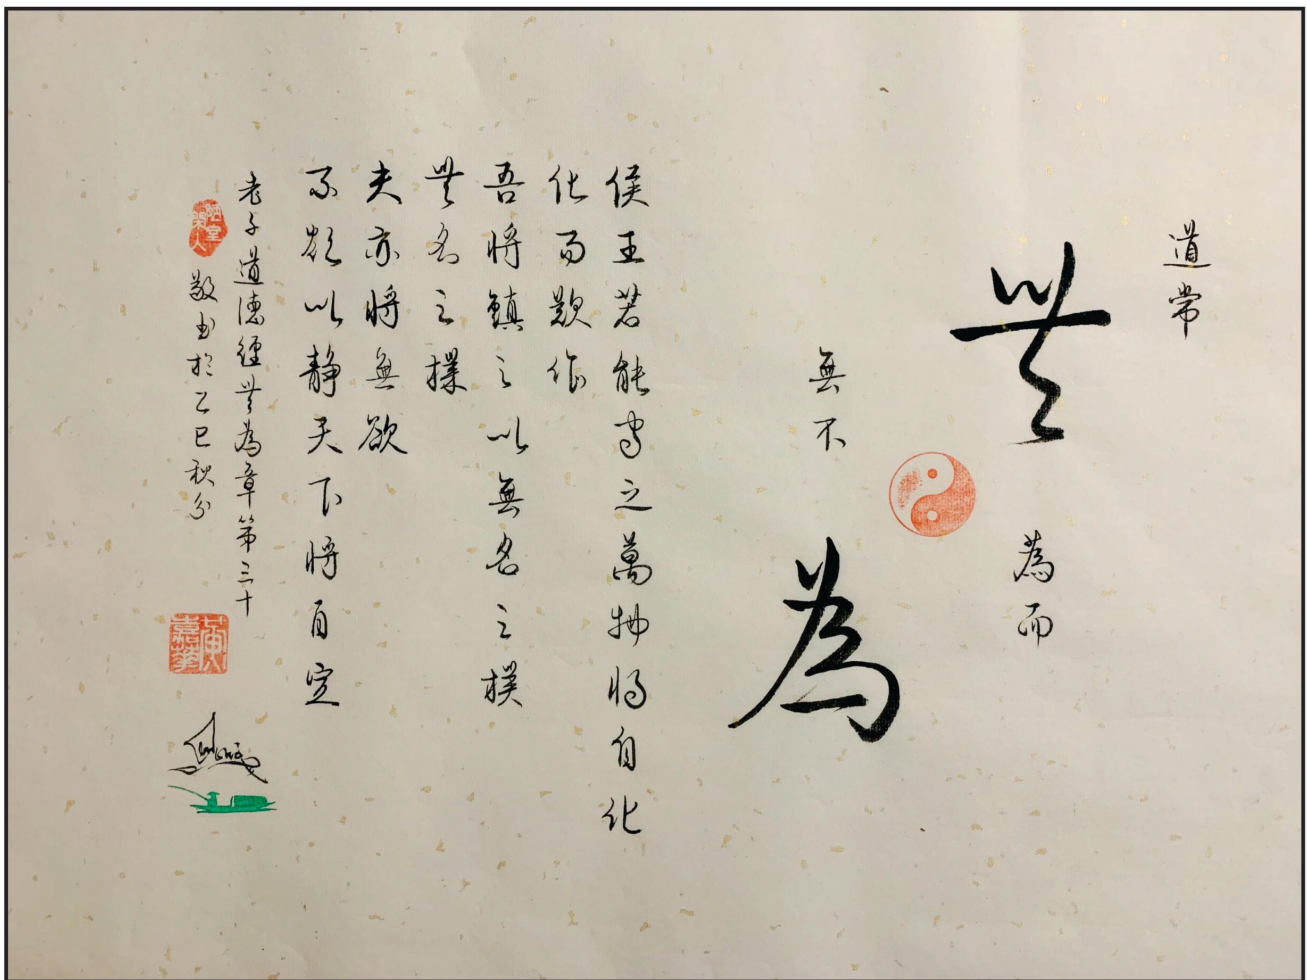 道常
無
為而
無不
為
侯王若能守之萬物將自化
化而欲作
吾將鎮之以無名之樸
無名之樸
夫亦將無欲
不欲以靜天下將自定
老子道德經無為章第三十
敬書於乙巳秋分